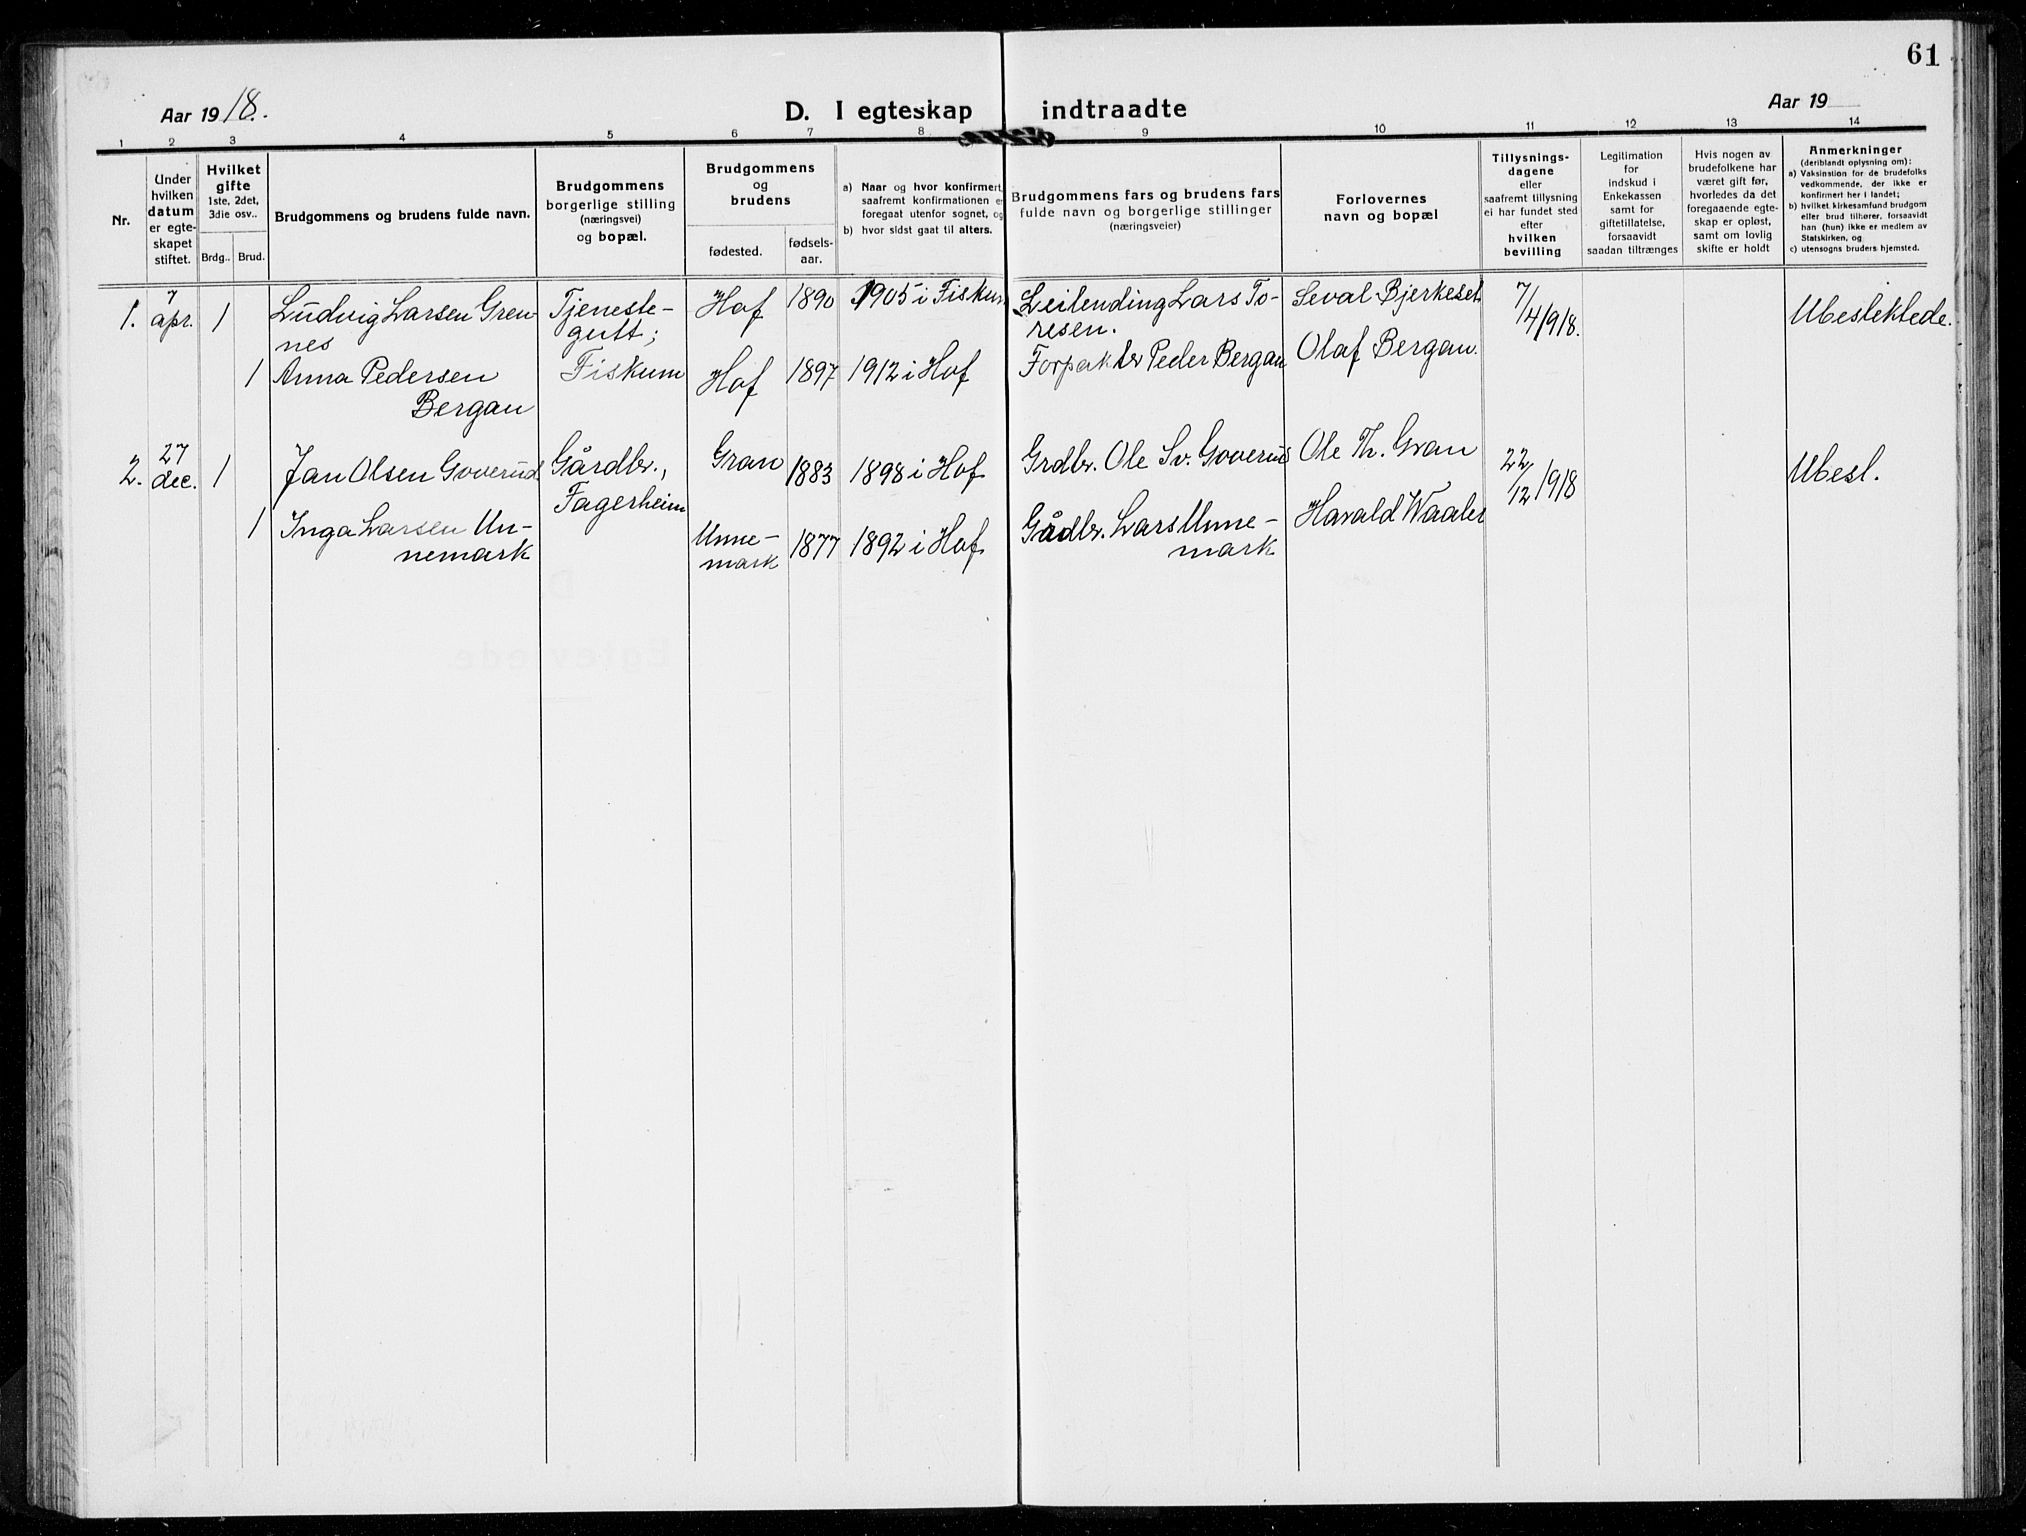 61
Aar 1918.
D. I egteskap indtraadte
Aar 19
1 2 3 4 5 6 7 8 9 10 11 12 13 14
Nr.
Under
hvilken
datum
er egte-
skapet
stiftet.
Hvilket
gifte
1ste, 2det,
3die osv..
Brdg.. Brud.
Brudgommens og brudens fulde navn.
Brudgommens
borgerlige stilling
(næringsvei)
og bopæl.
Brudgommens
og
brudens
fødested.
fødsels-
aar.
a) Naar og hvor konfirmert,
saafremt konfirmationen e
foregaat utenfor sognet, og
b) hvor sidst gaat til alters.
Brudgommens fars og brudens fars
fulde navn og borgerlige stillinger
(næringsveier)
Forlovernes
navn og bopæl
Tillysnings-
dagene
eller
saafremt tillysning
ei har fundet sted
efter
hvilken
bevilling
Legitimation
for
indskud i
Enkekassen
samt for
giftetillatelse,
forsaavidt
saadan tiltrænges
Hvis nogen av
brudefolkene har
været gift før,
hvorledes da det
foregaaende egte-
skap er opløst,
samt om lovlig
skifte er holdt
Anmerkninger
(deriblandt oplysning om):
a) Vaksination for de brudefolks
vedkommende, der ikke er
konfirmert her i landet;
b) hvilket kirkesamfund brudgom
eller brud tilhører, forsaavidt
han (hun) ikke er medlem av
Statskirken, og
c) utensogns bruders hjemsted.
1.
7
apr.
1
Ludvig Larsen Gren
nes
Tjeneste-
gutt;
Fiskum
Hof
1890
1905 i Fiskum
Leilending Lars To-
resen.
Seval Bjerkeset
7/4 1918.
Ubeslektede.
1
Anna Pedersen
Bergan
Hof
1897
1912 i Hof
Forpakter Peder Bergan
Olaf Bergan.
2.
27
dec.
1
Jan Olsen Goverud
Gårdbr.,
Fagerheim
Gran
1883
1898 i Hof
Grdbr. Ole Sv. Goverud
Ole Th. Gran
22/12 1918
Ubesl.
1
Inga Larsen Un-
nemark
Unne-
mark
1877
1892 i Hof
Gådbr. Lars Unne-
mark
Harald Waaler